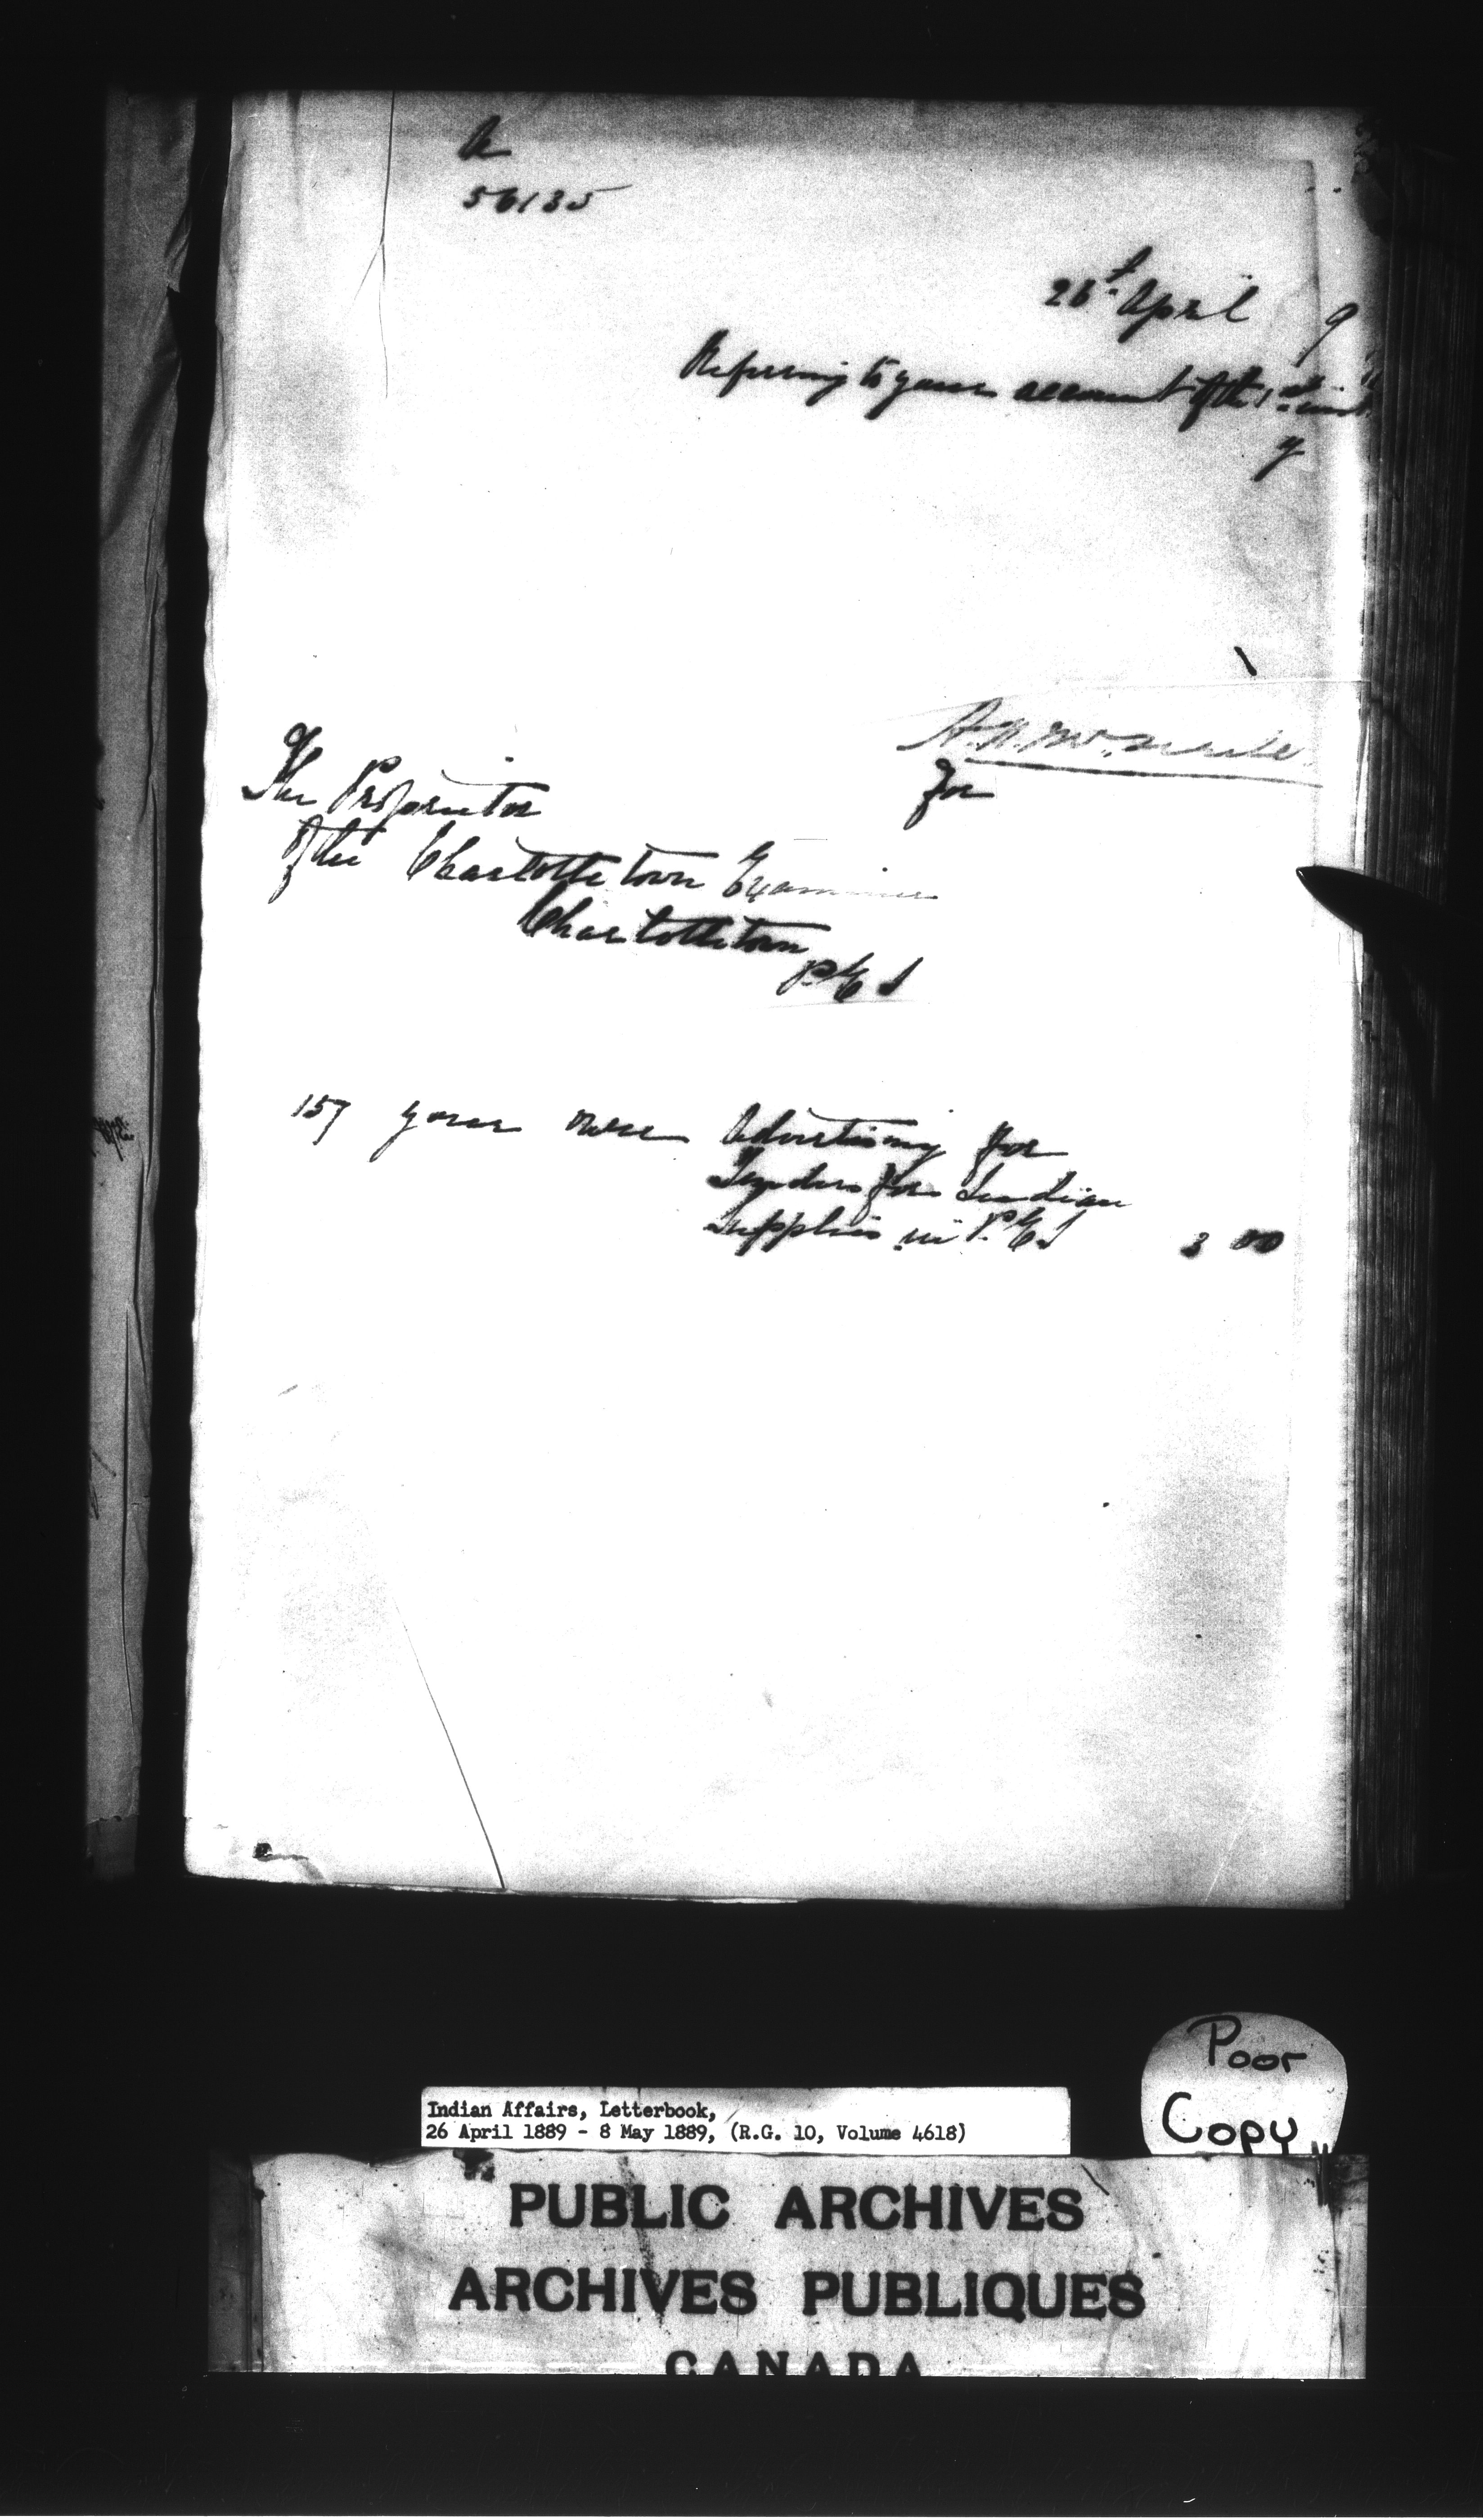 A
56135
26t. April 9
Referring to your account of the 1st inst.
y
A.N. McNeill
for
The Proprietor
of the Charlottetown Examiner
Charlottetown
P E I
157 your own Advertising for
Tenders for Indian
Supplies in P. E I 3 00
Poor
Copy
Indian Affairs, Letterbook,
26 April 1889 - 8 May 1889, (R.G. 10, Volume 4618)
PUBLIC ARCHIVES
ARCHIVES PUBLIQUES
CANADA